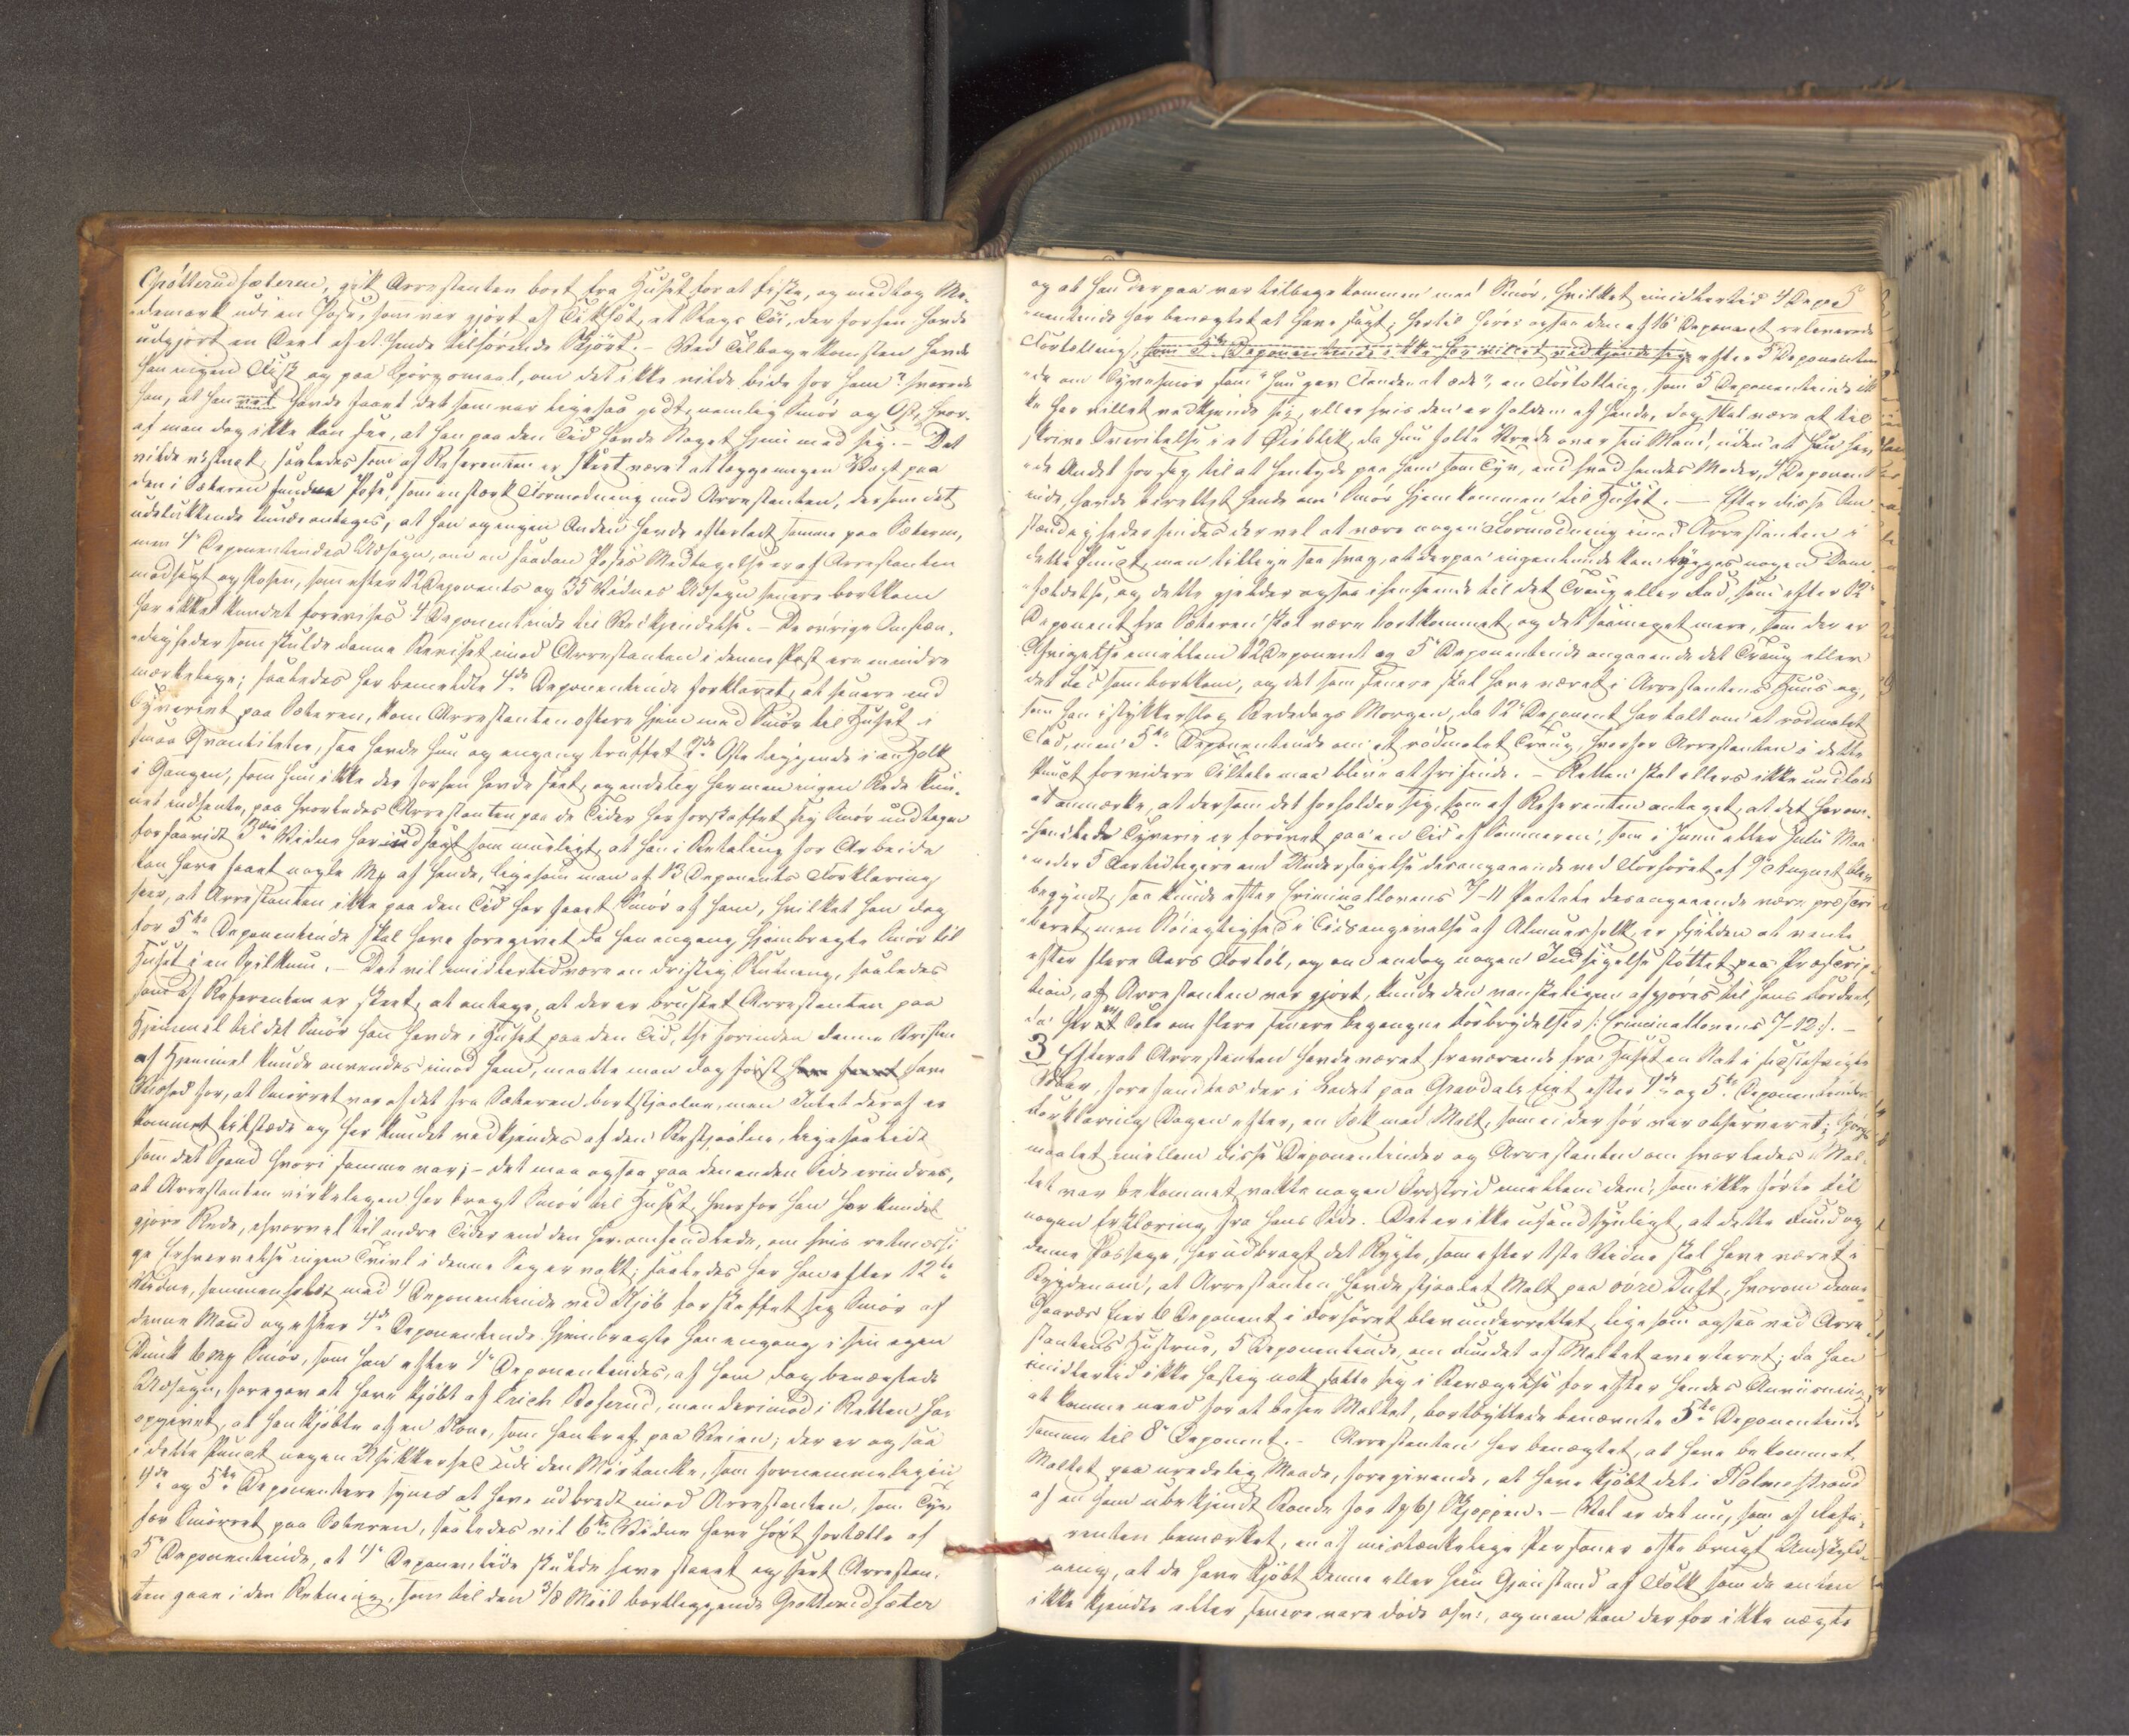 Grøtterudsæteren, gik Arrestanten bort fra Huset for at fiske, og medtog Ma-
demark udi en Pose, som var gjort af et Slags Tøi, der forhen havde
udgjort en Deel af et hende tilhørende Skjørt. – Ved Tilbagekomsten havde
han ingen Fisk og paa Spørgsmaal, om det ikke vilde bide for ham? svarede
han, at han havde faaet det som var ligesaa godt, nemlig Smør og Ost, hvor-
af man dog ikke kan see, at han paa den Tid havde Noget hjem med sig. – Det
vilde vistnok, saaledes som af Referenten er skeet være at lægge megen Vægt paa
den i Sæteren fundne Pose, som en stærk Formodning mod Arrestanten, dersom det
udelukkende kunde antages, at han og ingen Anden havde efterladt samme paa Sæteren,
men 4de Deponentindes Udsagn, om en saadan Poses Medtagelse er af Arrestanten
modsagt og Posen, som efter 12 Deponents og 35 Vidnes Udsagn senere bortkom
har ikke kundet forevises 4 Deponentinde til Vedkjendelse. – De øvrige Omstæn-
digheder som skulde danne Beviset imod Arrestanten i denne Post ere mindre
mærkelige; saaledes har bemeldte 4de Deponentinde forklaret, at senere end
Tyveriet paa Sæteren, kom Arrestanten oftere hjem med Smør til Huset i
smaa Qvantiteter, saa havde hun og engang truffet 2de Oste liggende i en Holk
i Gangen, som hun ikke der forhen havde seet, og endelig har man ingen Rede kun-
net indhente, paa hvorledes Arrestanten paa de Tider har forskaffet sig Smør undtagen
forsaavidt 3die Vidne har udsagt som muligt, at han i Betaling for Arbeide
kan have faaet nogle Mk af hende, ligesom man af 13 Deponents Forklaring
seer, at Arrestanten ikke paa den Tid har faaet Smør af ham, hvilket han dog
for 5te Deponentinde skal have foregivet da han engang hjembragte Smør til
Huset i en Spilkum. – Det vil imidlertid være en dristig Slutning, saaledes
som af Referenten er skeet, at antage, at der er brustet Arrestanten paa
Hjemmel til det Smør han havde i Huset paa den Tid, thi forinden denne Bristen
af Hjemmel kunde anvendes imod ham, maatte man dog først have
Vished for, at Smørret var af det fra Sæteren bortstjaalne, men Intet deraf er
kommet tilstæde og har kundet vedkjendes af den Bestjaalne, ligesaalidt
som det Spand hvori samme var; – det maa ogsaa paa den anden Side erindres,
at Arrestanten virkeligen har bragt Smør til Huset, hvorfor han har kundet
gjøre Rede, ihvorvel til andre Tider end den heromhandlede, om hvis retmæssi-
ge Erhvervelse ingen Tvivl i denne Sag er vakt; saaledes har han efter 12te
Vidne, sammenholdt med 4 Deponentinde ved Kjøb forskaffet sig Smør af
denne Mand og efter 4de Deponentinde hjembragte han engang i sin egen
Dunk 6 Mk Smør, som han efter 4de Deponentindes, af ham dog benægtede
Udsagn, foregav at have kjøbt af Erich Boserud, men derimod i Retten har
opgivet, at han kjøbte af en Kone, som han traf paa Veien; der er ogsaa
i dette Punct nogen Usikkerhed udi den Mistanke, som fornemmeligen
4de og 5te Deponentere synes at have udbredt imod Arrestanten, som Tyv
for Smørret paa Sæteren, saaledes vil 6te Vidne have hørt fortælle af
5 Deponentinde, at 4de Deponentinde skulde have staaet og seet Arrestan-
ten gaae i den Retning, som til den 3/8 Miil bortliggende Grøtterudsæter
og at han derpaa var tilbagekommen med Smør, hvilket imidlertid 4 Depo-
nentinde har benægtet at have sagt; hertil høres ogsaa den af 16 Deponent refererede
Fortælling, som 5te Deponentinde ikke har villet vedkjende sig efter 5 Deponentin-
de om Tyvesmør som "hun gav Fanden at æde", en Fortælling, som 5 Deponentinde ik-
ke har villet vedkjende sig, eller hvis den er falden af hende, dog skal være at til-
skrive Overilelse i et Øieblik, da hun følte Vrede over sin Mand, uden at hun hav-
de Andet for sig til at hentyde paa ham som Tyv, end hvad hendes Moder, 4 Deponent-
inde, havde berettet hende om Smør hjemkommen til Huset. – Efter disse Om-
stændigheder findes der vel at være nogen Formodning imod Arrestanten i
dette Punct, men tillige saa svag, at derpaa ingenlunde kan bygges nogen Dom-
fældelse, og dette gjelder ogsaa i henseende til det Traug eller Fad, som efter 12
Deponent fra Sæteren skal være bortkommet, og det saameget mere, som der er
Afvigelse imellem 12 Deponent og 5 Deponentinde angaaende det Traug eller
det Fad som bortkom, og det som senere skal have været i Arrestantens Huus og,
som han istykkerslog Bededags Morgen, da 12 Deponent har talt om et rødmalet
Fad, men 5te Deponentinde om et rødmalet Traug, hvorfor Arrestanten i dette
Punct for videre Tiltale maa blive at frifinde. – Retten skal ellers ikke undlade
at anmærke, at dersom det forholder sig, som af Referenten antaget, at det herom-
handlede Tyverie er forøvet paa en Tid af Sommeren, som i Juni eller Juli Maa-
neder 5 Aar tidligere end Undersøgelse desangaaende ved Forhøret af 9 August blev
begyndt, saa kunde efter Criminallovens 7–11 Paatale desangaaende være præscri-
beret, men Nøiagtighed i Tidsangivelse af Almuesfolk, er sjelden at vente
efter flere Aars Forløb, og om endog nogen Indsigelse støttet paa Præscrip-
tion, af Arrestanten var gjort, kunde den vanskeligen afgjøres til hans Fordeel,
da her er Tale om flere senere begangne Forbrydelser /: Criminallovens 7–12 :/. –
3 Efterat Arrestanten havde været fraværende fra Huset en Nat i sidstafvigte
, forefandtes der i Ladet paa Gravdals Eiet efter 4de og 5te Deponentinders
Forklaring Dagen efter, en Sæk med Malt, som ei der før var observeret; Spørgs-
maalet imellem disse Deponentinder og Arrestanten om hvorledes Mal-
tet var bekommet, vakte nogen Ordstrid imellem dem, som ikke førte til
nogen Erklæring fra hans Side. Det er ikke usandsynligt, at dette Fund og
denne Passage, har udbragt det Rygte, som efter 1ste Vidne skal have været i
Bygden om, at Arrestanten havde stjaalet Malt paa øvre Tuft, hvorom denne
Gaards Eier 6 Deponent i Forhøret blev underrettet, ligesom ogsaa ved Arre-
stantens Hustrue, 5 Deponentinde, om Fundet af Maltet averteret; da han
imidlertid ikke hastig nok satte sig i Bevægelse for efter hendes Anviisning
at komme med for at besee Maltet, bortbyttede benævnte 5te Deponentinde
samme til 8 Deponent. – Arrestanten har benægtet, at have bekommet
Maltet paa uredelig Maade, foregivende, at have kjøbt det i Holmestrand
af en ham ubekjendt Bonde for Skjeppen. – Vel er det nu, som af Refe-
renten bemærket, en af mistænkelige Personer ofte brugt Undskyld-
ning, at de have kjøbt denne eller hiin Gjenstand af Folk som de enten
ikke kjendte eller senere vare døde osv:, og man kan derfor ikke nægte